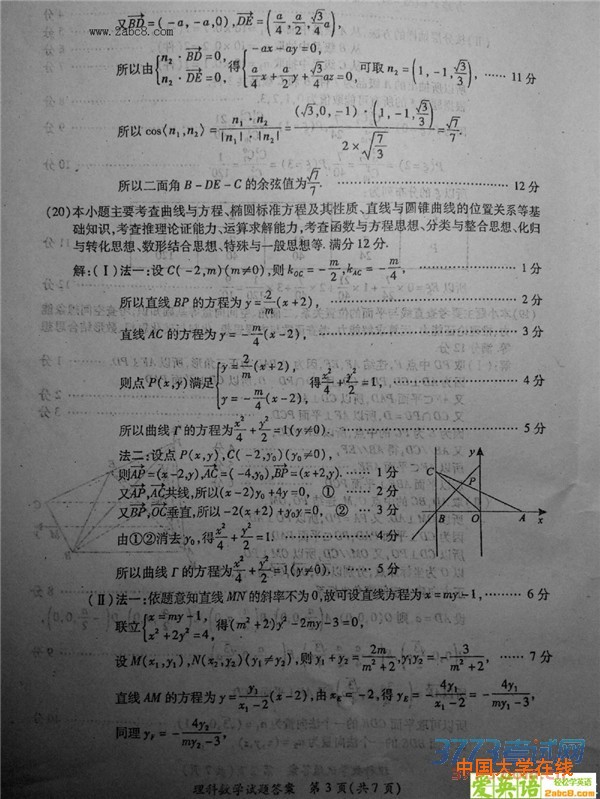 又$\overrightarrow{BD}=(-a,-a,0),\overrightarrow{DE}=\left(\frac{a}{4},\frac{a}{2},\frac{\sqrt{3}}{4}a\right)$,
www.2abc8.com
所以由$\begin{cases}n_2\cdot\overrightarrow{BD}=0,\\n_2\cdot\overrightarrow{DE}=0,\end{cases}$得$\begin{cases}-ax-ay=0,\\\frac{a}{4}x+\frac{a}{2}y+\frac{\sqrt{3}}{4}az=0,\end{cases}$可取$n_2=\left(1,-1,\frac{\sqrt{3}}{3}\right)$, …… 11分
所以$\cos\langle n_1,n_2\rangle=\frac{n_1\cdot n_2}{|n_1|\cdot|n_2|}=\frac{(\sqrt{3},0,-1)\cdot\left(1,-1,\frac{\sqrt{3}}{3}\right)}{2\times\sqrt{\frac{7}{3}}}=\frac{\sqrt{7}}{7}$.
所以二面角B-DE-C的余弦值为$\frac{\sqrt{7}}{7}$. …… 12分
(20)本小题主要考查曲线与方程、椭圆标准方程及其性质、直线与圆锥曲线的位置关系等基
础知识,考查推理论证能力、运算求解能力,考查函数与方程思想、分类与整合思想、化归
与转化思想、数形结合思想、特殊与一般思想等. 满分12分.
解:(Ⅰ)法一:设C(-2,m)(m≠0),则$k_{OC}=-\frac{m}{2},k_{AC}=-\frac{m}{4}$, …… 1分
所以直线BP的方程为$y=\frac{2}{m}(x+2)$, …… 2分
直线AC的方程为$y=-\frac{m}{4}(x-2)$, …… 3分
则点P(x,y)满足$\begin{cases}y=\frac{2}{m}(x+2),\\y=-\frac{m}{4}(x-2),\end{cases}$得$\frac{x^2}{4}+\frac{y^2}{2}=1$, …… 4分
所以曲线Γ的方程为$\frac{x^2}{4}+\frac{y^2}{2}=1(y≠0)$. …… 5分
法二:设点P(x,y),C(-2,$y_0$)($y_0$≠0),
则$\overrightarrow{AP}=(x-2,y),\overrightarrow{AC}=(-4,y_0),\overrightarrow{BP}=(x+2,y)$. …… 1分
又$\overrightarrow{AP},\overrightarrow{AC}$共线,所以$(x-2)y_0+4y=0$, ① …… 2分
又$\overrightarrow{BP},\overrightarrow{OC}$垂直,所以$-2(x+2)+y_0y=0$, ② … 3分
由①②消去$y_0$,得$\frac{x^2}{4}+\frac{y^2}{2}=1$. …… 4分
所以曲线Γ的方程为$\frac{x^2}{4}+\frac{y^2}{2}=1(y≠0)$. …… 5分
y
C
P
B
O
A
x
(Ⅱ)法一:依题意知直线MN的斜率不为0,故可设直线方程为x=my-1, …… 6分
联立$\begin{cases}x=my-1,\\x^2+2y^2=4,\end{cases}$得$(m^2+2)y^2-2my-3=0$,
设$M(x_1,y_1),N(x_2,y_2)(y_1≠y_2)$,则$y_1+y_2=\frac{2m}{m^2+2},y_1y_2=-\frac{3}{m^2+2}$, …… 7分
直线AM的方程为$y=\frac{y_1}{x_1-2}(x-2)$,由$x_E=-2$,得$y_E=-\frac{4y_1}{x_1-2}=-\frac{4y_1}{my_1-3}$,
同理$y_F=-\frac{4y_2}{my_2-3}$,
3773考试网
中国大学在线
理科数学试题答案 第3页(共7页)
爱英语 轻松学英语
2abc8.com